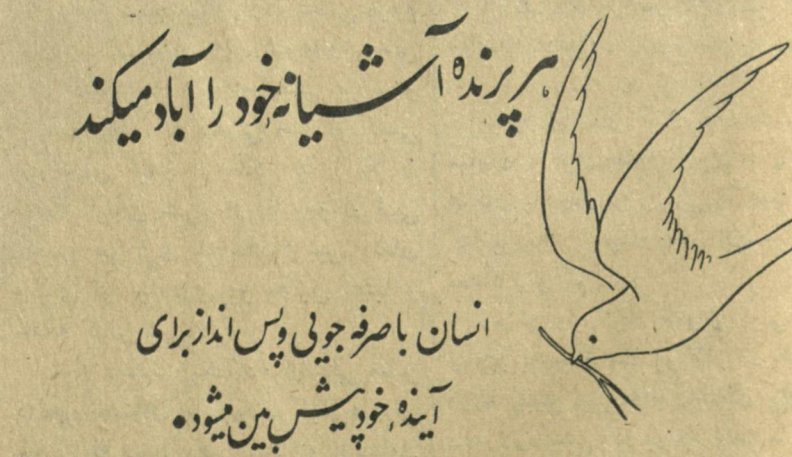 هر پرنده آشیانه خود را آباد میکند
انسان با صرفه جویی و پس انداز برای
آینده خود پیش بین میشود.